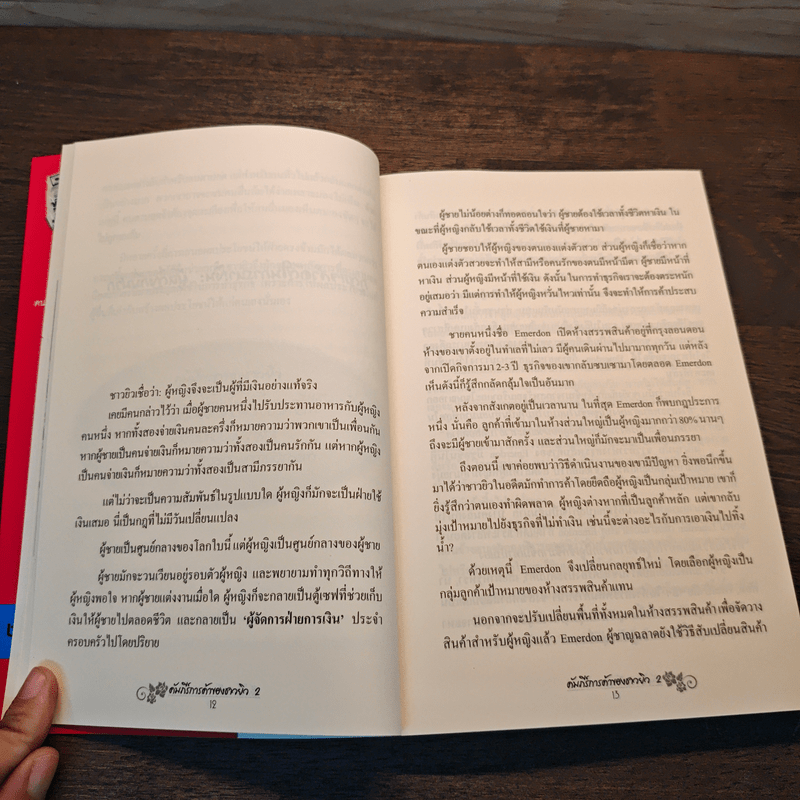 ชาวยิวเชื่อว่า: ผู้หญิงจึงจะเป็นผู้ที่มีเงินอย่างแท้จริง
เคยมีคนกล่าวไว้ว่า เมื่อผู้ชายคนหนึ่งไปรับประทานอาหารกับผู้หญิง
คนหนึ่ง หากทั้งสองจ่ายเงินคนละครึ่งก็หมายความว่าพวกเขาเป็นเพื่อนกัน
หากผู้ชายเป็นคนจ่ายเงินก็หมายความว่าทั้งสองเป็นคนรักกัน แต่หากผู้หญิง
เป็นคนจ่ายเงินก็หมายความว่าทั้งสองเป็นสามีภรรยากัน
แต่ไม่ว่าจะเป็นความสัมพันธ์ในรูปแบบใด ผู้หญิงก็มักจะเป็นฝ่ายใช้
เงินเสมอ นี่เป็นกฎที่ไม่มีวันเปลี่ยนแปลง
ผู้ชายเป็นศูนย์กลางของโลกใบนี้ แต่ผู้หญิงเป็นศูนย์กลางของผู้ชาย
ผู้ชายมักจะวนเวียนอยู่รอบตัวผู้หญิง และพยายามทำทุกวิถีทางให้
ผู้หญิงพอใจ หากผู้ชายแต่งงานเมื่อใด ผู้หญิงก็จะกลายเป็นตู้เซฟที่ช่วยเก็บ
เงินให้ผู้ชายไปตลอดชีวิต และกลายเป็น 'ผู้จัดการฝ่ายการเงิน' ประจำ
ครอบครัวไปโดยปริยาย
คัมภีร์การค้าของชาวยิว 2
12
ผู้ชายไม่น้อยต่างก็ทอดถอนใจว่า ผู้ชายต้องใช้เวลาทั้งชีวิตหาเงิน ใน
ขณะที่ผู้หญิงกลับใช้เวลาทั้งชีวิตใช้เงินที่ผู้ชายหามา
ผู้ชายชอบให้ผู้หญิงของตนเองแต่งตัวสวย ส่วนผู้หญิงก็เชื่อว่าหาก
ตนเองแต่งตัวสวยจะทำให้สามีหรือคนรักของตนมีหน้ามีตา ผู้ชายมีหน้าที่
หาเงิน ส่วนผู้หญิงมีหน้าที่ใช้เงิน ดังนั้น ในการทำธุรกิจเราจะต้องตระหนัก
อยู่เสมอว่า มีแต่การทำให้ผู้หญิงหวั่นไหวเท่านั้น จึงจะทำให้การค้าประสบ
ความสำเร็จ
ชายคนหนึ่งชื่อ Emerdon เปิดห้างสรรพสินค้าอยู่ที่กรุงลอนดอน
ห้างของเขาตั้งอยู่ในทำเลที่ไม่เลว มีผู้คนเดินผ่านไปมามากทุกวัน แต่หลัง
จากเปิดกิจการมา 2-3 ปี ธุรกิจของเขากลับซบเซามาโดยตลอด Emerdon
เห็นดังนี้ก็รู้สึกกลัดกลุ้มใจเป็นอันมาก
หลังจากสังเกตอยู่เป็นเวลานาน ในที่สุด Emerdon ก็พบกฎประการ
หนึ่ง นั่นคือ ลูกค้าที่เข้ามาในห้างส่วนใหญ่เป็นผู้หญิงมากกว่า 80% นานๆ
ถึงจะมีผู้ชายเข้ามาสักครั้ง และส่วนใหญ่ก็มักจะมาเป็นเพื่อนภรรยา
ถึงตอนนี้ เขาค่อยพบว่าวิธีดำเนินงานของเขามีปัญหา ยิ่งพอนึกขึ้น
มาได้ว่าชาวยิวในอดีตมักทำการค้าโดยยึดถือผู้หญิงเป็นกลุ่มเป้าหมาย เขาก็
ยิ่งรู้สึกว่าตนเองทำผิดพลาด ผู้หญิงต่างหากที่เป็นลูกค้าหลัก แต่เขากลับ
มุ่งเป้าหมายไปยังธุรกิจที่ไม่ทำเงิน เช่นนี้จะต่างอะไรกับการเอาเงินไปทิ้ง
น้ำ?
ด้วยเหตุนี้ Emerdon จึงเปลี่ยนกลยุทธ์ใหม่ โดยเลือกผู้หญิงเป็น
กลุ่มลูกค้าเป้าหมายของห้างสรรพสินค้าแทน
นอกจากจะปรับเปลี่ยนพื้นที่ทั้งหมดในห้างสรรพสินค้า เพื่อจัดวาง
สินค้าสำหรับผู้หญิงแล้ว Emerdon ผู้ชาญฉลาดยังใช้วิธีสับเปลี่ยนสินค้า
คัมภีร์การค้าของชาวยิว 2
13